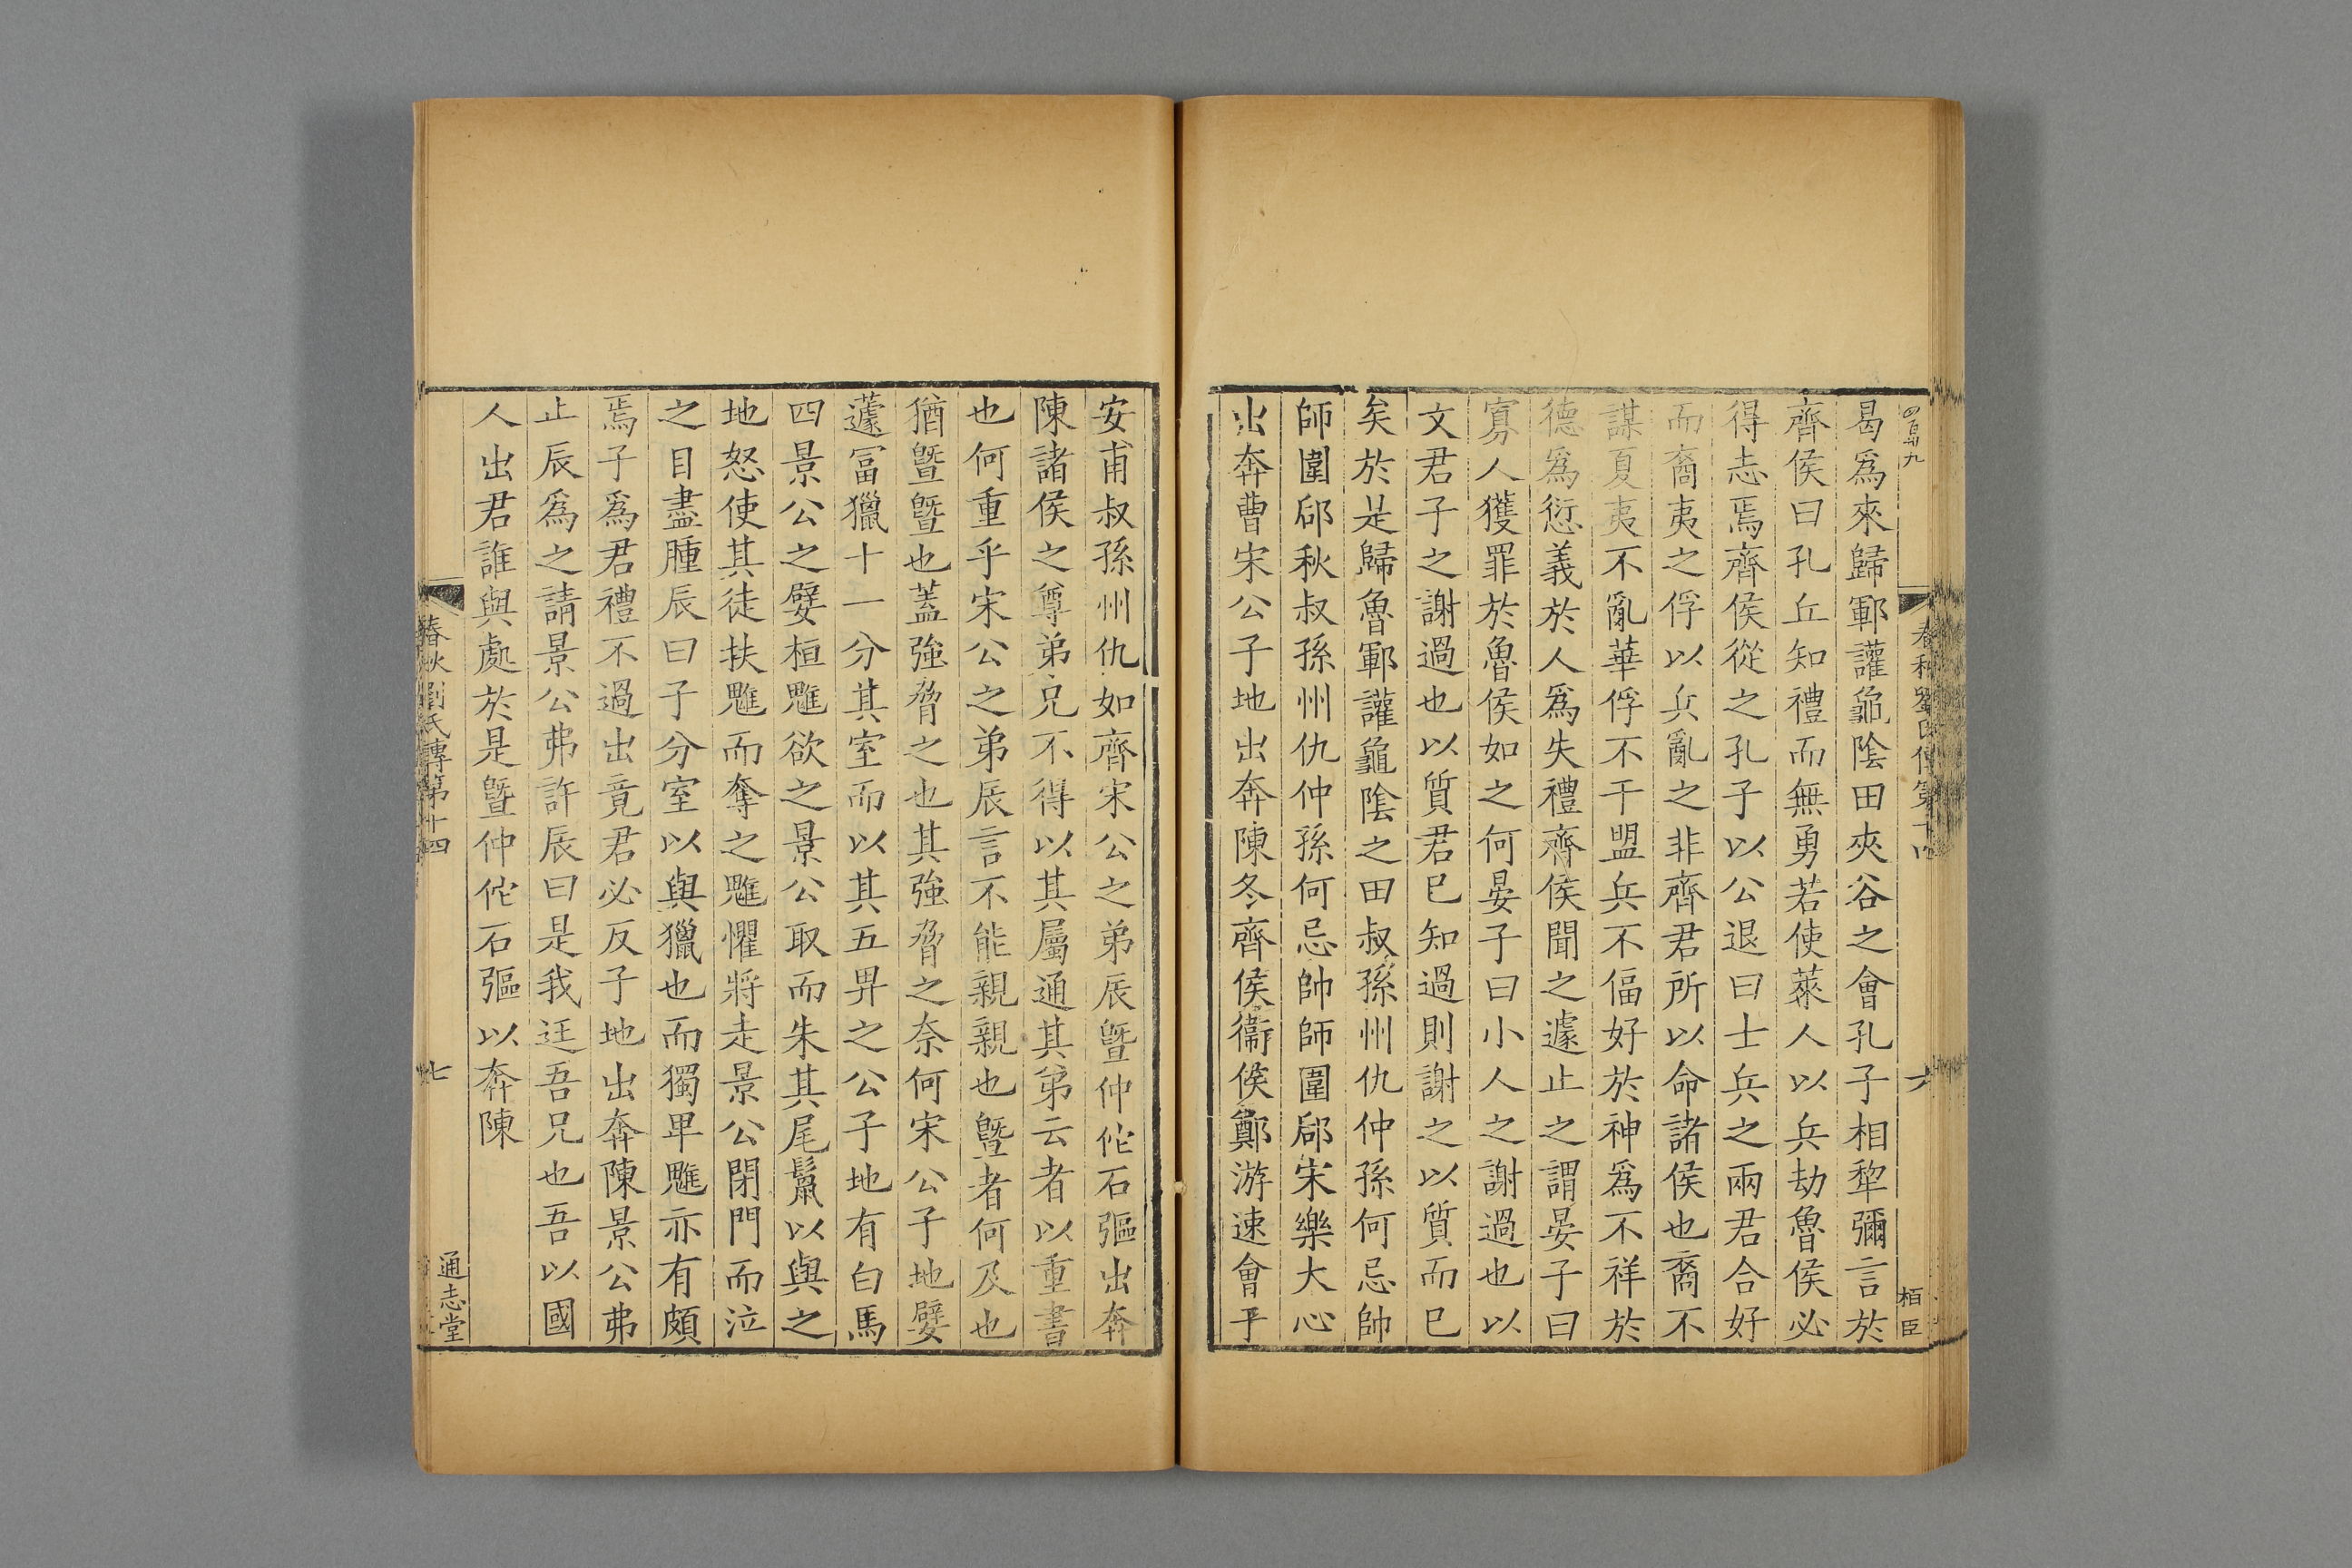 四百卅九
春秋劉氏傳第十四
六
栢臣
曷爲來歸鄆讙龜陰田夾谷之會孔子相犂彌言於
齊侯曰孔丘知禮而無勇若使萊人以兵劫魯侯必
得志焉齊侯從之孔子以公退曰士兵之兩君合好
而裔夷之俘以兵亂之非齊君所以命諸侯也裔不
謀夏夷不亂華俘不干盟兵不偪好於神爲不祥於
德爲愆義於人爲失禮齊侯聞之遽止之謂晏子曰
寡人獲罪於魯侯如之何晏子曰小人之謝過也以
文君子之謝過也以質君已知過則謝之以質而已
矣於是歸魯鄆讙龜陰之田叔孫州仇仲孫何忌帥
師圍郈秋叔孫州仇仲孫何忌帥師圍郈宋樂大心
出奔曹宋公子地出奔陳冬齊侯衞侯鄭游速會于
安甫叔孫州仇如齊宋公之弟辰曁仲佗石彄出奔
陳諸侯之尊弟兄不得以其屬通其弟云者以重書
也何重乎宋公之弟辰言不能親親也曁者何及也
猶曁曁也蓋強脅之也其強脅之奈何宋公子地嬖
蘧冨獵十一分其室而以其五畀之公子地有白馬
四景公之嬖桓魋欲之景公取而朱其尾鬣以與之
地怒使其徒扶魋而奪之魋懼將走景公閉門而泣
之目盡腫辰曰子分室以與獵也而獨卑魋亦有頗
焉子爲君禮不過出竟君必反子地出奔陳景公弗
止辰爲之請景公弗許辰曰是我迋吾兄也吾以國
人出君誰與處於是曁仲佗石彄以奔陳
春秋劉氏傳第十四
七
通志堂